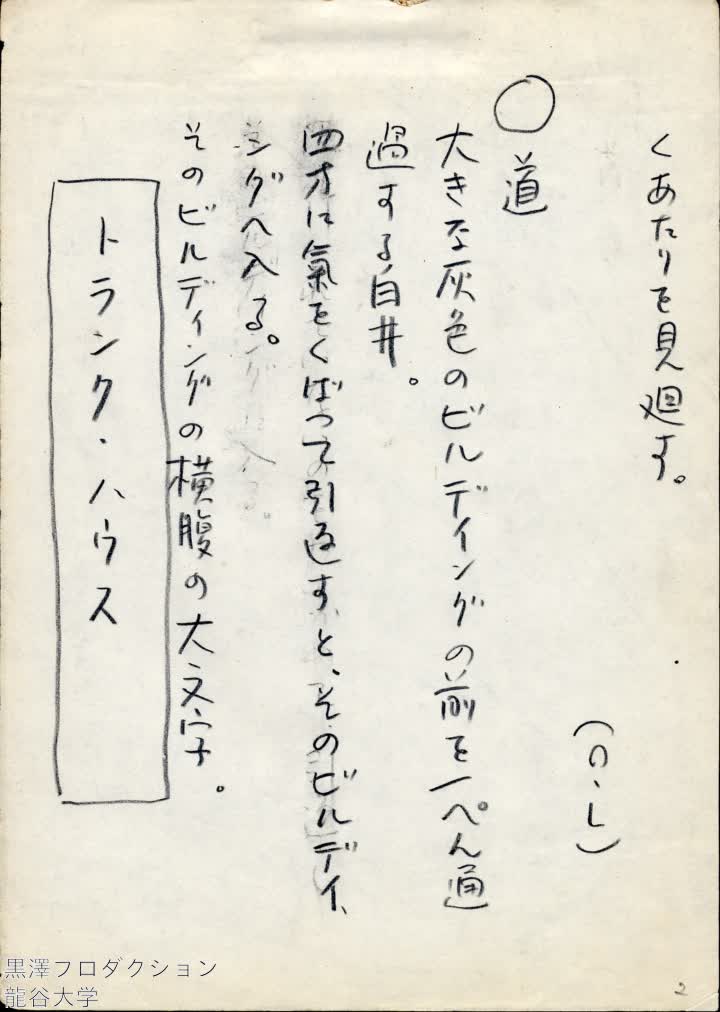 くあたりを見廻す。
(O.L)
○道
大きな灰色のビルデイングの前を一ぺん通
過する白井。
四方に氣をくばつて引返すと、そのビルデイ
ングへ入る。
そのビルデイングの横腹の大文字。
トランク・ハウス
2
黒澤プロダクション
龍谷大学